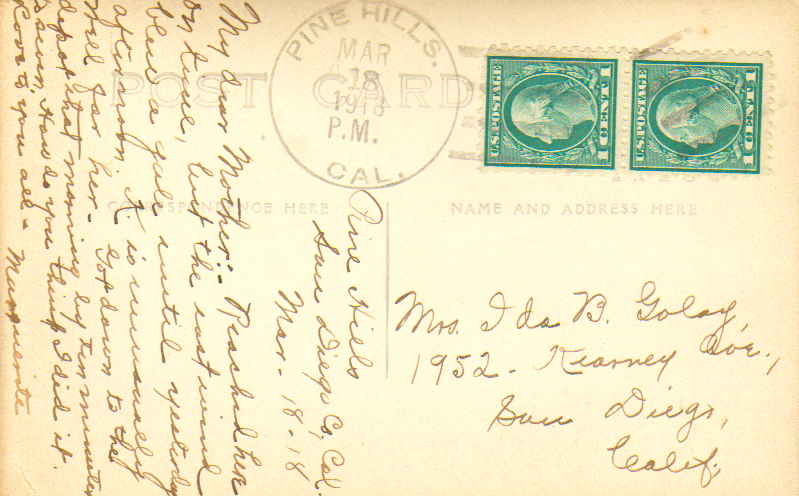 POST CARD
PINE HILLS.
MAR
18
1918
P.M.
CAL.
U.S. POSTAGE
1 CENT 1
U.S. POSTAGE
1 CENT 1
CORRESPONDENCE HERE
NAME AND ADDRESS HERE
Pine Hills
San Diego Co, Cal.
Mar. 18-18
My dear Mother:- Reached here
on time, but the east wind
blew a gale until yesterday
afternoon. K is unusually
well for her- Got down to the
depot that morning by ten minutes
seven, How do you think I did it.
Love to you all- Marguerite
Mrs. Ida B. Golay,
1952- Kearney Ave.,
San Diego,
Calif.